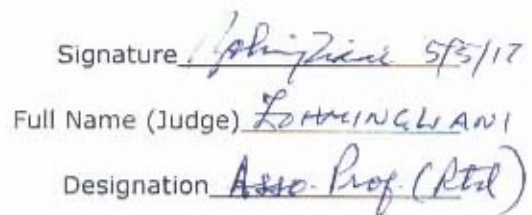 Signature 5/5/17
Full Name (Judge) ZOHMINGLIANI
Designation Asso. Prof. (Rtd)